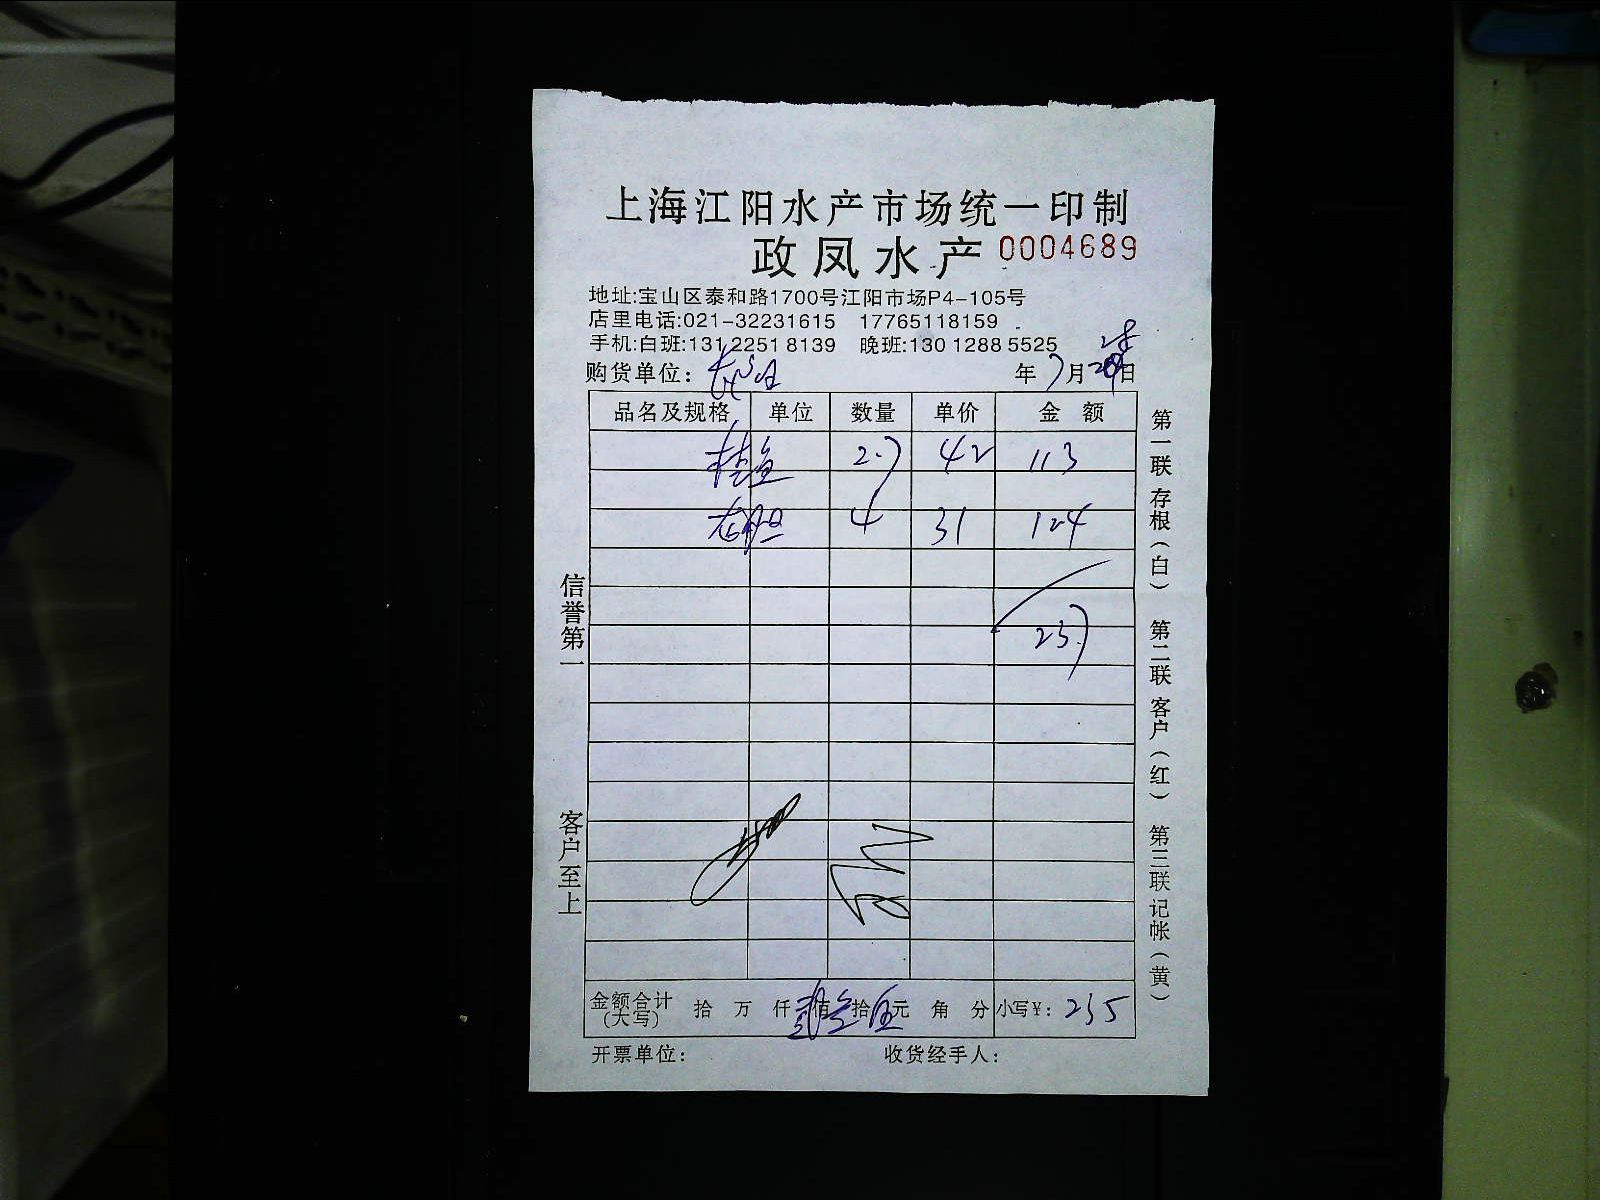 上海江阳水产市场统一印制
政凤水产 0004689
地址:宝山区泰和路1700号江阳市场P4-105号
店里电话:021-32231615 17765118159
手机:白班:131 2251 8139 晚班:130 1288 5525
购货单位: 年 7月 日
品名及规格 单位 数量 单价 金 额
桂鱼 2.7 42 113
4 31 124
237
金额合计(大写) 拾 万 仟 贰佰 叁拾 伍元 角 分 小写¥: 235
开票单位: 收货经手人:
信誉第一 客户至上
第一联 存根(白) 第二联 客户(红) 第三联 记帐(黄)